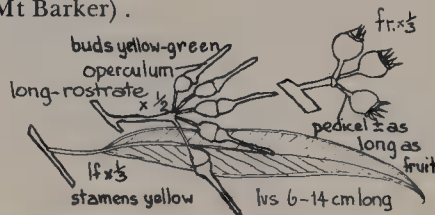 Mt Barker).
buds yellow-green
operculum
long-rostrate
x ½
fr. x ⅓
pedicel ± as
long as
fruit
lf x ⅓
stamens yellow
lvs 6-14 cm long